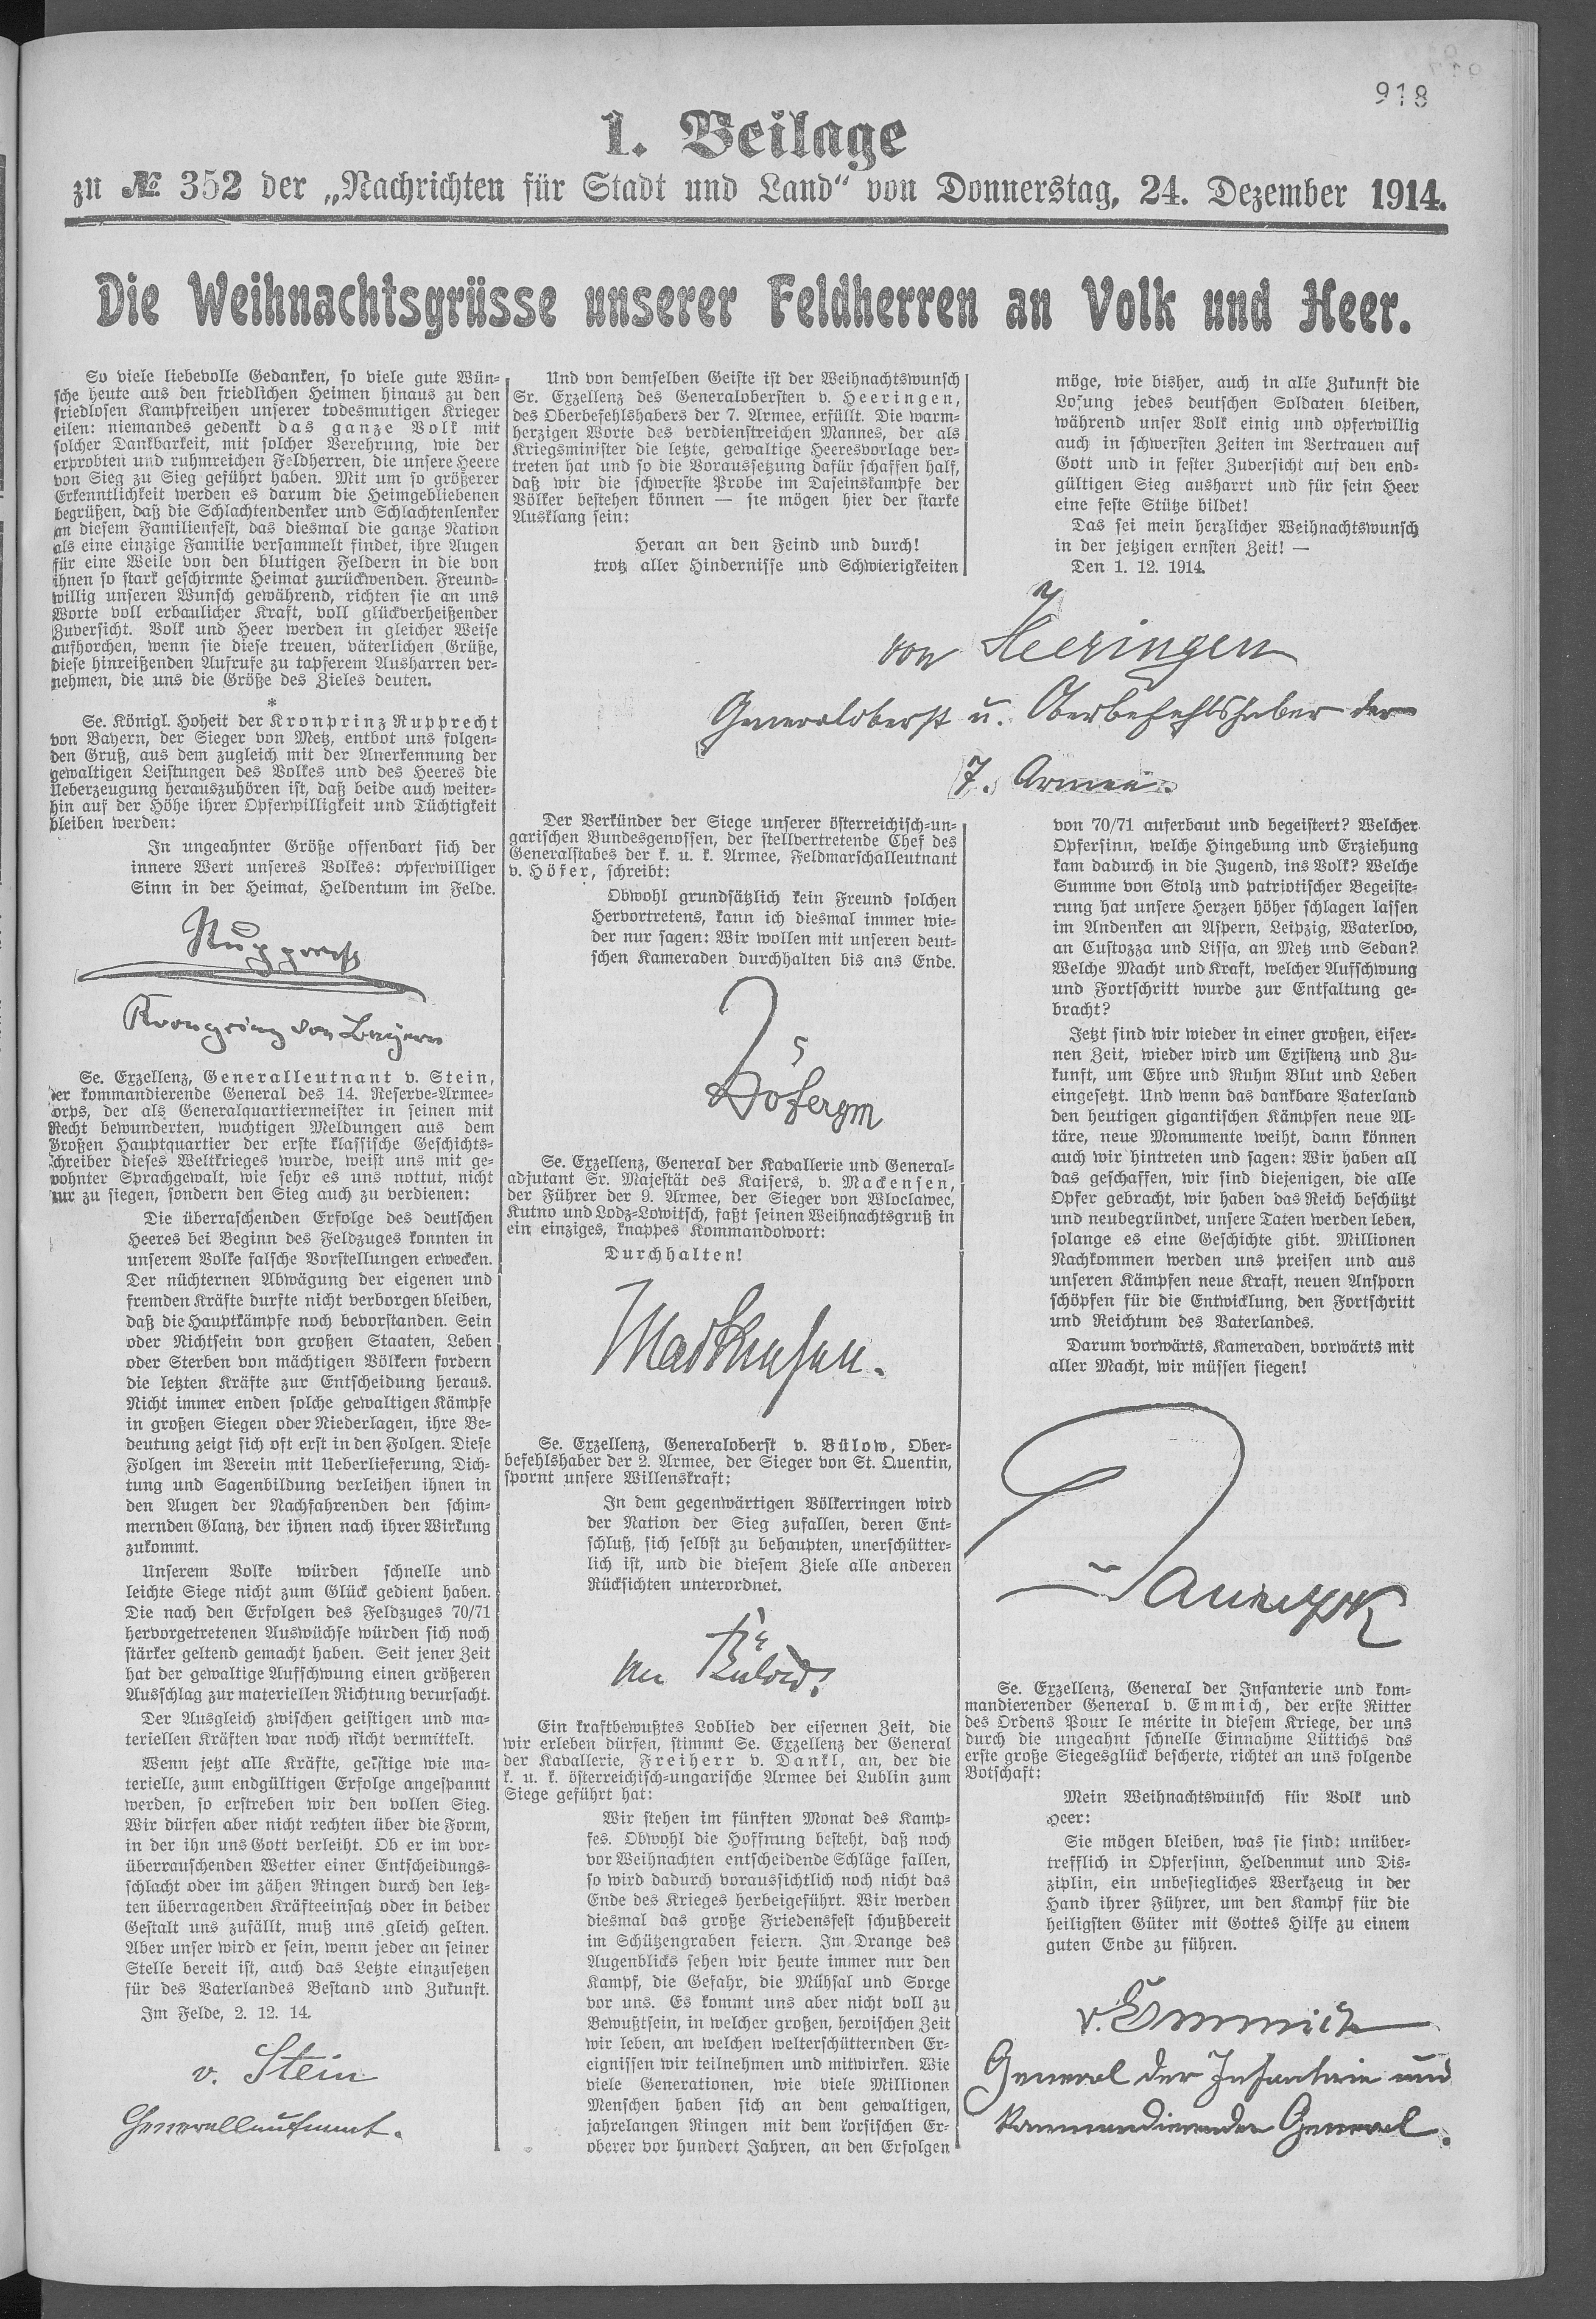 918
1. Beilage
zu № 352 der „Nachrichten für Stadt und Land“ von Donnerstag, 24. Dezember 1914.
Die Weihnachtsgrüsse unserer Feldherren an Volk und Heer.
So viele liebevolle Gedanken, so viele gute Wün-
sche heute aus den friedlichen Heimen hinaus zu den
friedlosen Kampfreihen unserer todesmutigen Krieger
eilen: niemandes gedenkt das ganze Volk mit
solcher Dankbarkeit, mit solcher Verehrung, wie der
erprobten und ruhmreichen Feldherren, die unsere Heere
von Sieg zu Sieg geführt haben. Mit um so größerer
Erkenntlichkeit werden es darum die Heimgebliebenen
begrüßen, daß die Schlachtendenker und Schlachtenlenker
an diesem Familienfest, das diesmal die ganze Nation
als eine einzige Familie versammelt findet, ihre Augen
für eine Weile von den blutigen Feldern in die von
ihnen so stark geschirmte Heimat zurückwenden. Freund-
willig unseren Wunsch gewährend, richten sie an uns
Worte voll erbaulicher Kraft, voll glückverheißender
Zuversicht. Volk und Heer werden in gleicher Weise
aufhorchen, wenn sie diese treuen, väterlichen Grüße,
diese hinreißenden Aufrufe zu tapferem Ausharren ver-
nehmen, die uns die Größe des Zieles deuten.
*
Se. Königl. Hoheit der Kronprinz Rupprecht
von Bayern, der Sieger von Metz, entbot uns folgen-
den Gruß, aus dem zugleich mit der Anerkennung der
gewaltigen Leistungen des Volkes und des Heeres die
Ueberzeugung herauszuhören ist, daß beide auch weiter-
hin auf der Höhe ihrer Opferwilligkeit und Tüchtigkeit
bleiben werden:
In ungeahnter Größe offenbart sich der
innere Wert unseres Volkes: opferwilliger
Sinn in der Heimat, Heldentum im Felde.
Rupprecht
Kronprinz von Bayern
Se. Exzellenz, Generalleutnant v. Stein,
der kommandierende General des 14. Reserve-Armee-
orps, der als Generalquartiermeister in seinen mit
Recht bewunderten, wuchtigen Meldungen aus dem
Großen Hauptquartier der erste klassische Geschichts-
schreiber dieses Weltkrieges wurde, weist uns mit ge-
wohnter Sprachgewalt, wie sehr es uns nottut, nicht
nur zu siegen, sondern den Sieg auch zu verdienen:
Die überraschenden Erfolge des deutschen
Heeres bei Beginn des Feldzuges konnten in
unserem Volke falsche Vorstellungen erwecken.
Der nüchternen Abwägung der eigenen und
fremden Kräfte durfte nicht verborgen bleiben,
daß die Hauptkämpfe noch bevorstanden. Sein
oder Nichtsein von großen Staaten, Leben
oder Sterben von mächtigen Völkern fordern
die letzten Kräfte zur Entscheidung heraus.
Nicht immer enden solche gewaltigen Kämpfe
in großen Siegen oder Niederlagen, ihre Be-
deutung zeigt sich oft erst in den Folgen. Diese
Folgen im Verein mit Ueberlieferung, Dich-
tung und Sagenbildung verleihen ihnen in
den Augen der Nachfahrenden den schim-
mernden Glanz, der ihnen nach ihrer Wirkung
zukommt.
Unserem Volke würden schnelle und
leichte Siege nicht zum Glück gedient haben.
Die nach den Erfolgen des Feldzuges 70/71
hervorgetretenen Auswüchse würden sich noch
stärker geltend gemacht haben. Seit jener Zeit
hat der gewaltige Aufschwung einen größeren
Ausschlag zur materiellen Richtung verursacht.
Der Ausgleich zwischen geistigen und ma-
teriellen Kräften war noch nicht vermittelt.
Wenn jetzt alle Kräfte, geistige wie ma-
terielle, zum endgültigen Erfolge angespannt
werden, so erstreben wir den vollen Sieg.
Wir dürfen aber nicht rechten über die Form,
in der ihn uns Gott verleiht. Ob er im vor-
überrauschenden Wetter einer Entscheidungs-
schlacht oder im zähen Ringen durch den letz-
ten überragenden Kräfteeinsatz oder in beider
Gestalt uns zufällt, muß uns gleich gelten.
Aber unser wird er sein, wenn jeder an seiner
Stelle bereit ist, auch das Letzte einzusetzen
für des Vaterlandes Bestand und Zukunft.
Im Felde, 2. 12. 14.
v. Stein
Generalleutnant.
Und von demselben Geiste ist der Weihnachtswunsch
Sr. Exzellenz des Generalobersten v. Heeringen,
des Oberbefehlshabers der 7. Armee, erfüllt. Die warm-
herzigen Worte des verdienstreichen Mannes, der als
Kriegsminister die letzte, gewaltige Heeresvorlage ver-
treten hat und so die Voraussetzung dafür schaffen half,
daß wir die schwerste Probe im Daseinskampfe der
Völker bestehen können — sie mögen hier der starke
Ausklang sein:
Heran an den Feind und durch!
trotz aller Hindernisse und Schwierigkeiten
möge, wie bisher, auch in alle Zukunft die
Losung jedes deutschen Soldaten bleiben,
während unser Volk einig und opferwillig
auch in schwersten Zeiten im Vertrauen auf
Gott und in fester Zuversicht auf den end-
gültigen Sieg ausharrt und für sein Heer
eine feste Stütze bildet!
Das sei mein herzlicher Weihnachtswunsch
in der jetzigen ernsten Zeit! —
Den 1. 12. 1914.
von Heeringen
Generaloberst u. Oberbefehlshaber der
7. Armee.
Der Verkünder der Siege unserer österreichisch-un-
garischen Bundesgenossen, der stellvertretende Chef des
Generalstabes der k. u. k. Armee, Feldmarschalleutnant
v. Höfer, schreibt:
Obwohl grundsätzlich kein Freund solchen
Hervortretens, kann ich diesmal immer wie-
der nur sagen: Wir wollen mit unseren deut-
schen Kameraden durchhalten bis ans Ende.
Höfer
Se. Exzellenz, General der Kavallerie und General-
adjutant Sr. Majestät des Kaisers, v. Mackensen,
der Führer der 9. Armee, der Sieger von Wloclawec,
Kutno und Lodz-Lowitsch, faßt seinen Weihnachtsgruß in
ein einziges, knappes Kommandowort:
Durchhalten!
Mackensen.
Se. Exzellenz, Generaloberst v. Bülow, Ober-
befehlshaber der 2. Armee, der Sieger von St. Quentin,
spornt unsere Willenskraft:
In dem gegenwärtigen Völkerringen wird
der Nation der Sieg zufallen, deren Ent-
schluß, sich selbst zu behaupten, unerschütter-
lich ist, und die diesem Ziele alle anderen
Rücksichten unterordnet.
von Bülow.
Ein kraftbewußtes Loblied der eisernen Zeit, die
wir erleben dürfen, stimmt Se. Exzellenz der General
der Kavallerie, Freiherr v. Dankl, an, der die
k. u. k. österreichisch-ungarische Armee bei Lublin zum
Siege geführt hat:
Wir stehen im fünften Monat des Kamp-
fes. Obwohl die Hoffnung besteht, daß noch
vor Weihnachten entscheidende Schläge fallen,
so wird dadurch voraussichtlich noch nicht das
Ende des Krieges herbeigeführt. Wir werden
diesmal das große Friedensfest schußbereit
im Schützengraben feiern. Im Drange des
Augenblicks sehen wir heute immer nur den
Kampf, die Gefahr, die Mühsal und Sorge
vor uns. Es kommt uns aber nicht voll zu
Bewußtsein, in welcher großen, heroischen Zeit
wir leben, an welchen welterschütternden Er-
eignissen wir teilnehmen und mitwirken. Wie
viele Generationen, wie viele Millionen
Menschen haben sich an dem gewaltigen,
jahrelangen Ringen mit dem korsischen Er-
oberer vor hundert Jahren, an den Erfolgen
von 70/71 auferbaut und begeistert? Welcher
Opfersinn, welche Hingebung und Erziehung
kam dadurch in die Jugend, ins Volk? Welche
Summe von Stolz und patriotischer Begeiste-
rung hat unsere Herzen höher schlagen lassen
im Andenken an Aspern, Leipzig, Waterloo,
an Custozza und Lissa, an Metz und Sedan?
Welche Macht und Kraft, welcher Aufschwung
und Fortschritt wurde zur Entfaltung ge-
bracht?
Jetzt sind wir wieder in einer großen, eiser-
nen Zeit, wieder wird um Existenz und Zu-
kunft, um Ehre und Ruhm Blut und Leben
eingesetzt. Und wenn das dankbare Vaterland
den heutigen gigantischen Kämpfen neue Al-
täre, neue Monumente weiht, dann können
auch wir hintreten und sagen: Wir haben all
das geschaffen, wir sind diejenigen, die alle
Opfer gebracht, wir haben das Reich beschützt
und neubegründet, unsere Taten werden leben,
solange es eine Geschichte gibt. Millionen
Nachkommen werden uns preisen und aus
unseren Kämpfen neue Kraft, neuen Ansporn
schöpfen für die Entwicklung, den Fortschritt
und Reichtum des Vaterlandes.
Darum vorwärts, Kameraden, vorwärts mit
aller Macht, wir müssen siegen!
Se. Exzellenz, General der Infanterie und kom-
mandierender General v. Emmich, der erste Ritter
des Ordens Pour le mérite in diesem Kriege, der uns
durch die ungeahnt schnelle Einnahme Lüttichs das
erste große Siegesglück bescherte, richtet an uns folgende
Botschaft:
Mein Weihnachtswunsch für Volk und
Heer:
Sie mögen bleiben, was sie sind: unüber-
trefflich in Opfersinn, Heldenmut und Dis-
ziplin, ein unbesiegliches Werkzeug in der
Hand ihrer Führer, um den Kampf für die
heiligsten Güter mit Gottes Hilfe zu einem
guten Ende zu führen.
v. Emmich
General der Infanterie und
kommandierender General.